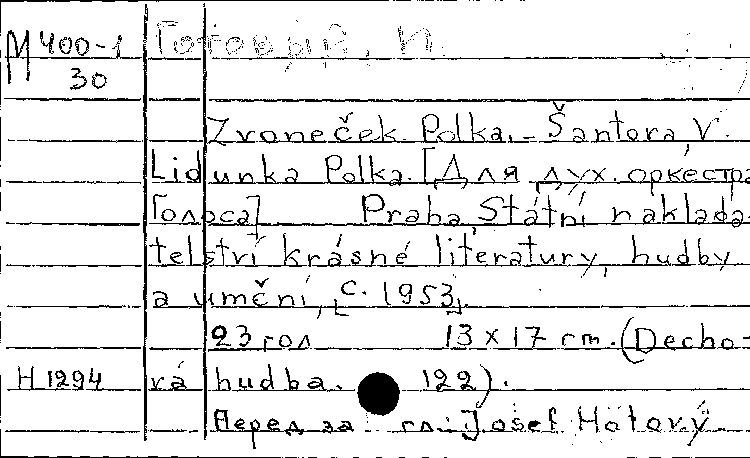 М 400-1 Готовый, И.
30
Zvoneček. Polka. - Šantora, V.
Lidunka Polka. [Для дух. оркестра
Голоса] Praha, Státní naklada-
telství krásné literatury, hudby
a umění, [c. 1953].
23 гол 13 x 17 cm. (Decho-
H 1294 vá hudba. 122).
Перед за гл.: Josef Hotový.